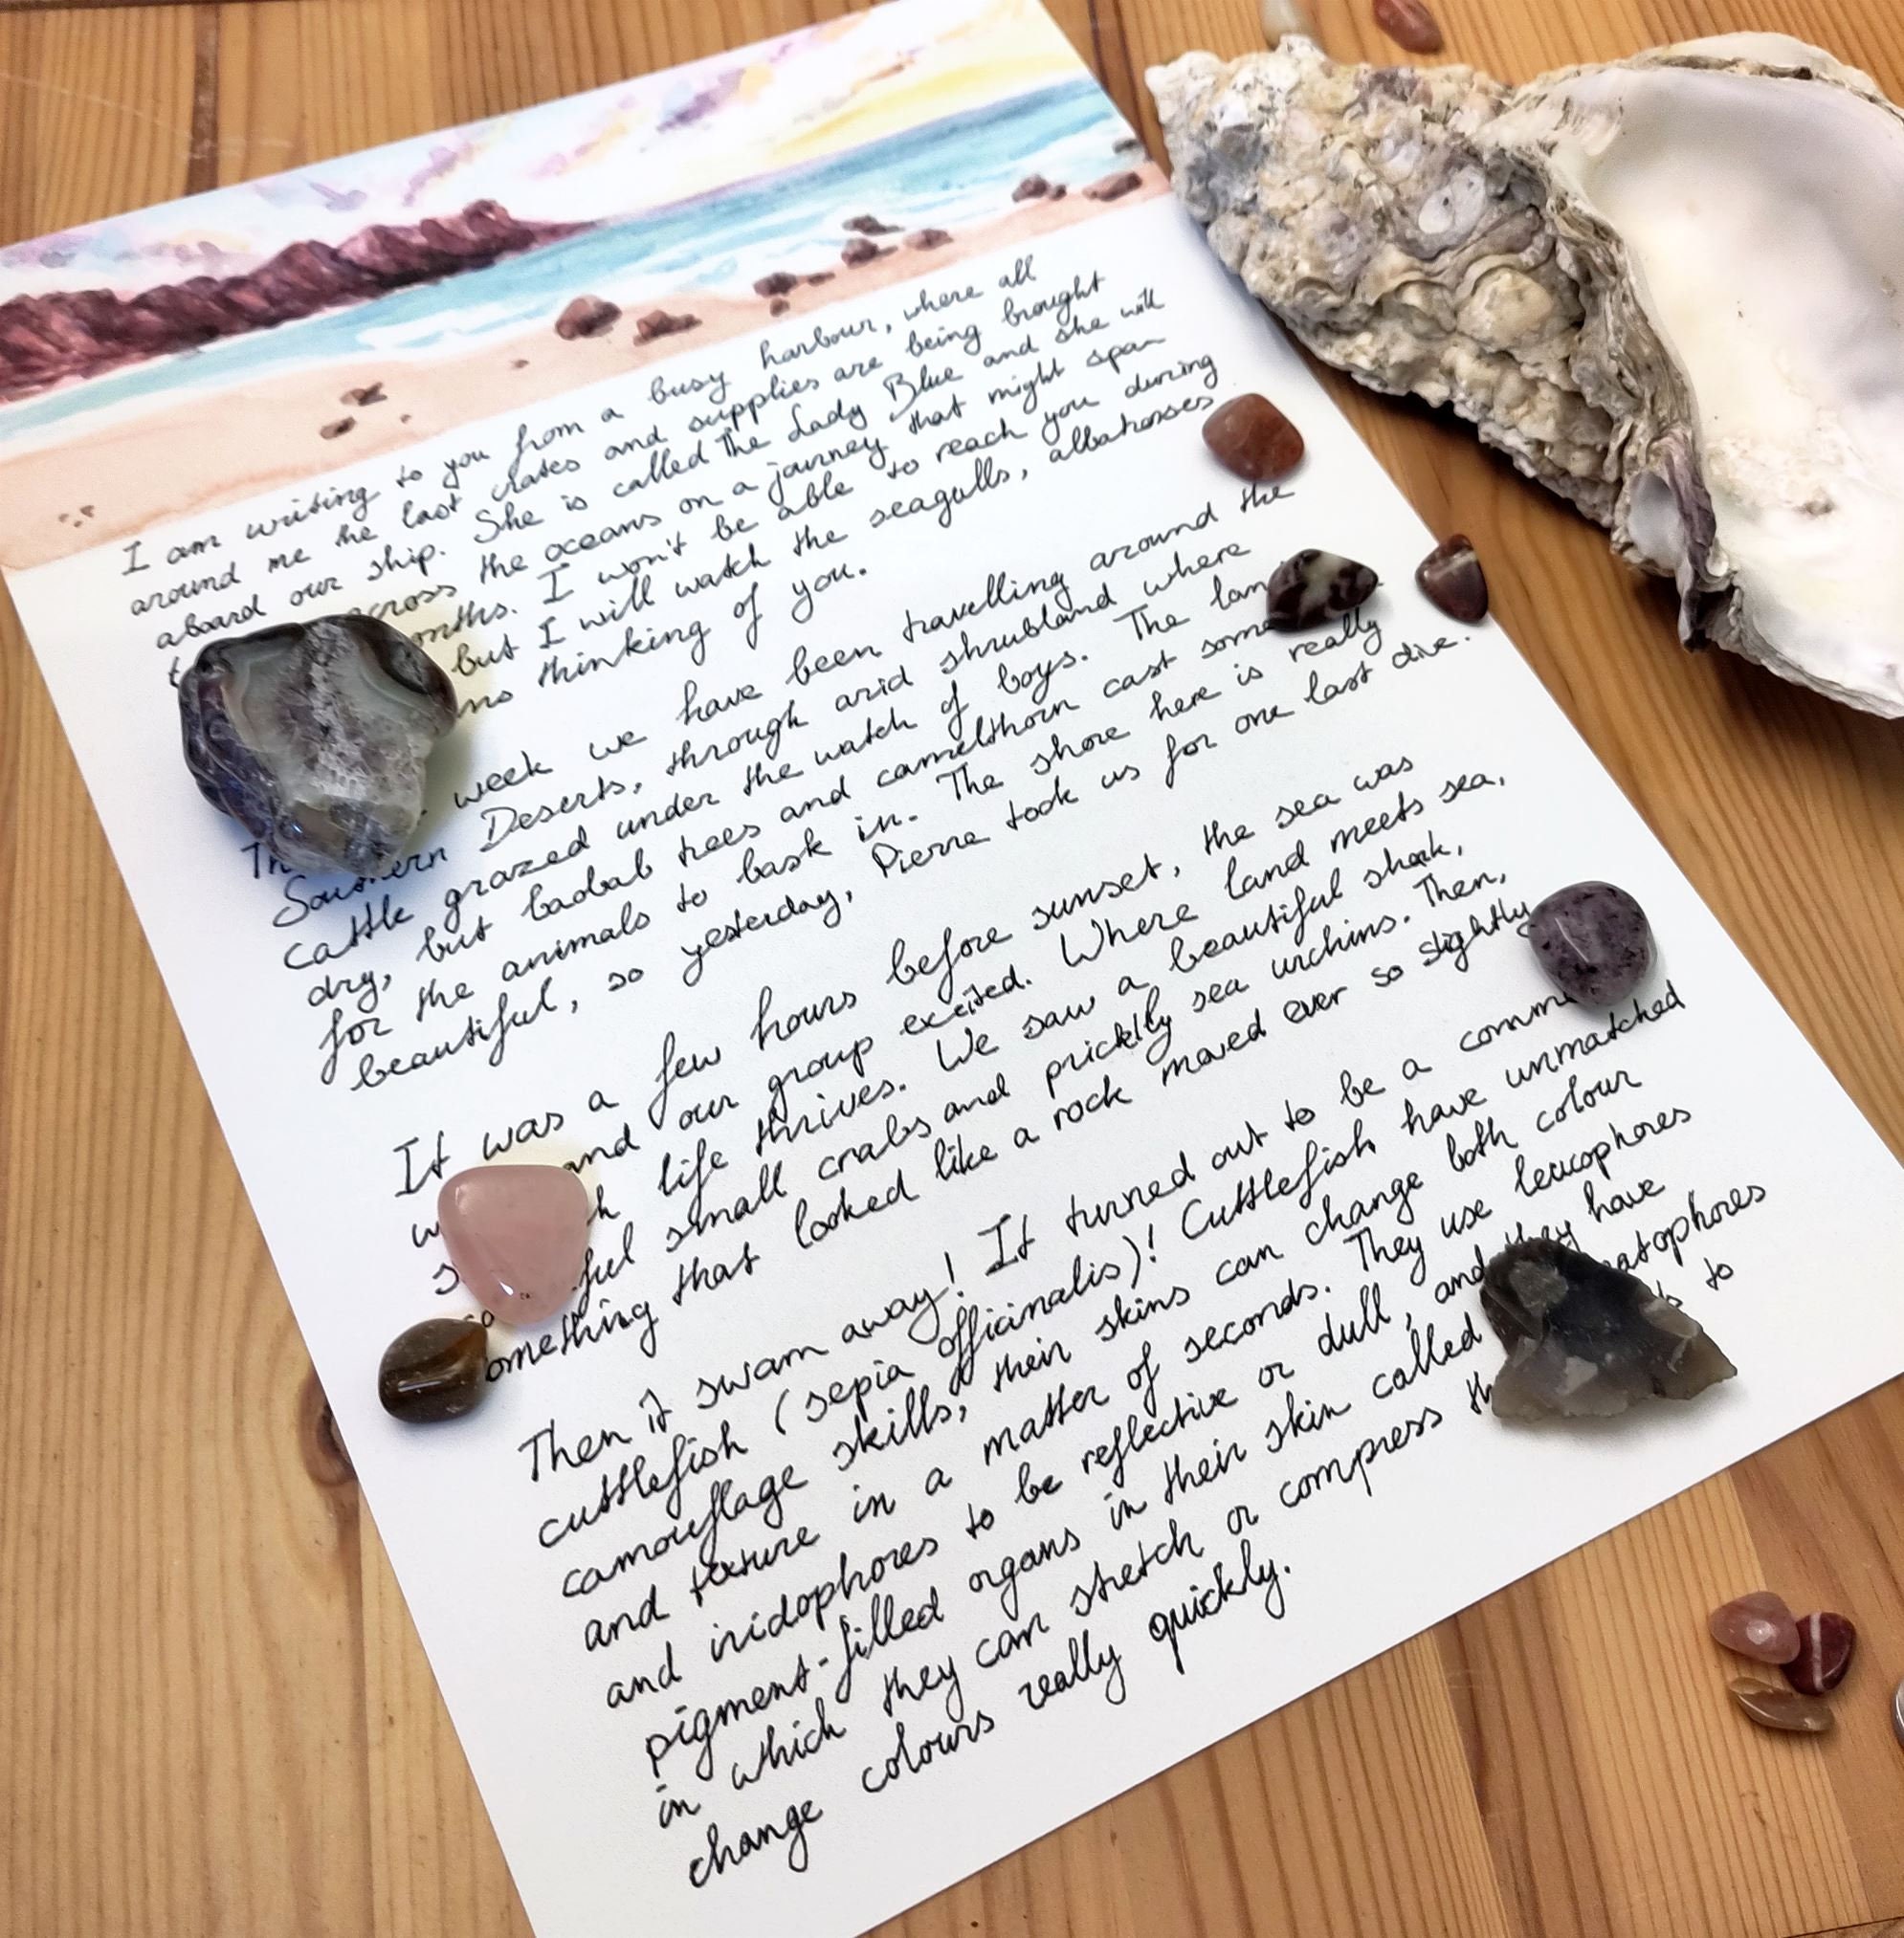 I am writing to you from a busy harbour, where all
around me the last crates and supplies are being brought
aboard our ship. She is called The Lady Blue and she will
across the oceans on a journey that might span
I won't be able to reach you during
but I will watch the seagulls, albatrosses
thinking of you.
week we have been travelling around the
Southern Deserts, through arid shrubland where
cattle grazed under the watch of boys. The
dry, but baobab trees and camelthorn cast some
for the animals to bask in. The shore here is really
beautiful, so yesterday, Pierre took us for one last dive.
It was a few hours before sunset, the sea was
and our group excited. Where land meets sea,
life thrives. We saw a beautiful shark,
small crabs and prickly sea urchins. Then,
something that looked like a rock moved ever so slightly
Then it swam away! It turned out to be a
cuttlefish (sepia officinalis)! Cuttlefish have unmatched
camouflage skills, their skins can change both colour
and texture in a matter of seconds. They use leucophores
and iridophores to be reflective or dull, and they have
pigment-filled organs in their skin called
in which they can stretch or compress to
change colours really quickly.